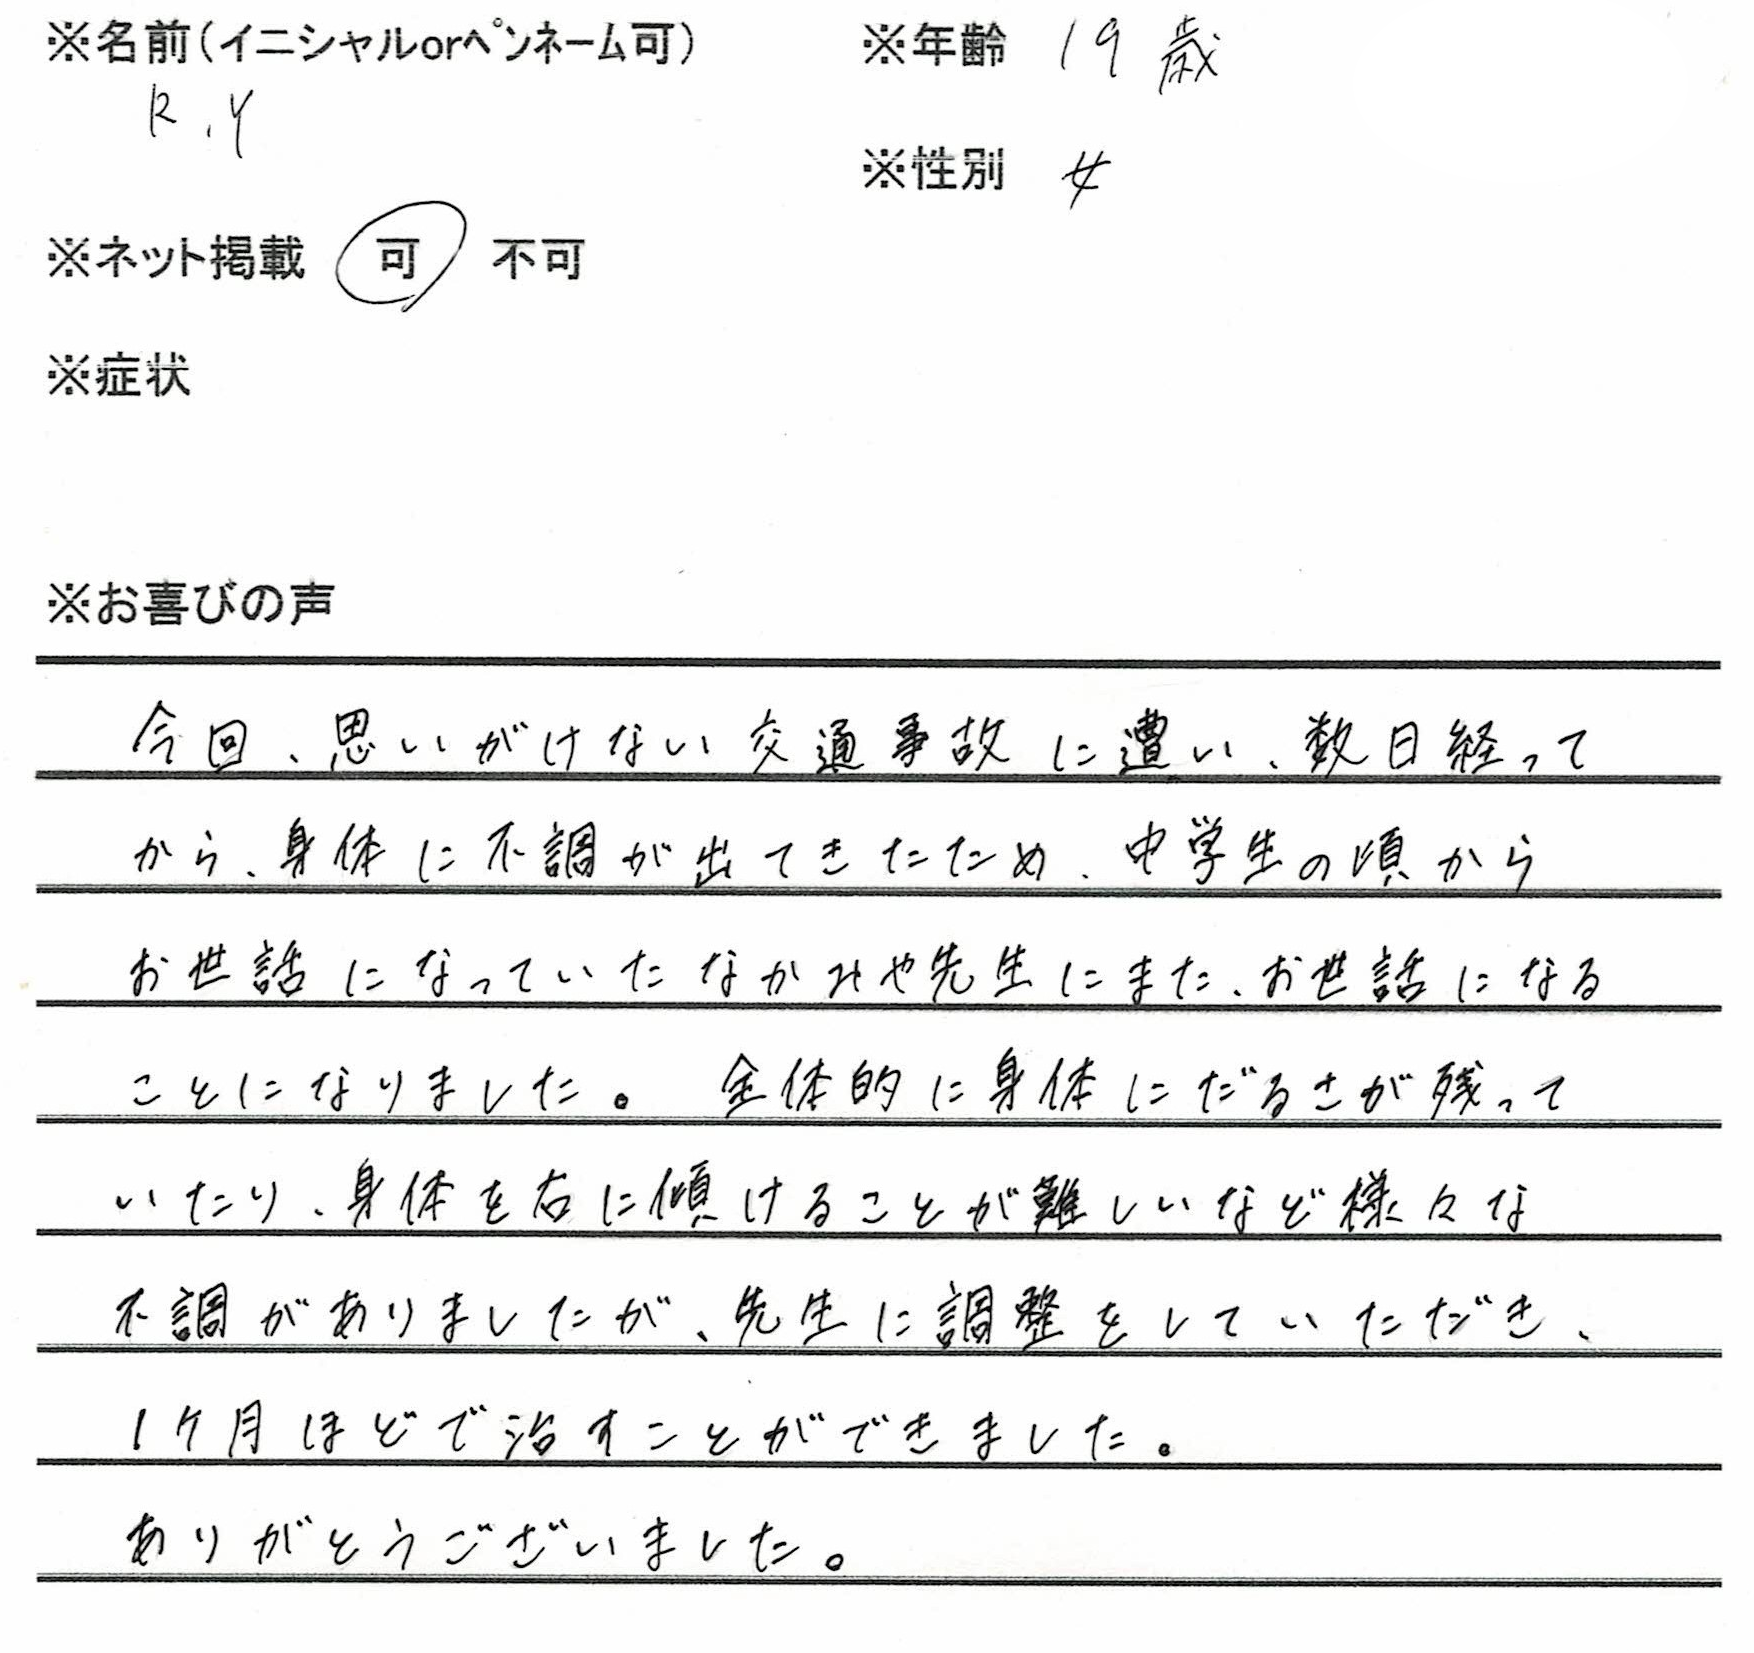 ※名前(イニシャルorペンネーム可) ※年齢 19歳
R.Y
※性別 女
※ネット掲載 可 不可
※症状
※お喜びの声
今回、思いがけない交通事故に遭い、数日経って
から、身体に不調が出てきたため、中学生の頃から
お世話になっていたなかみや先生にまた、お世話になる
ことになりました。 全体的に身体にだるさが残って
いたり、身体を右に傾けることが難しいなど様々な
不調がありましたが、先生に調整をしていただき、
1ケ月ほどで治すことができました。
ありがとうございました。